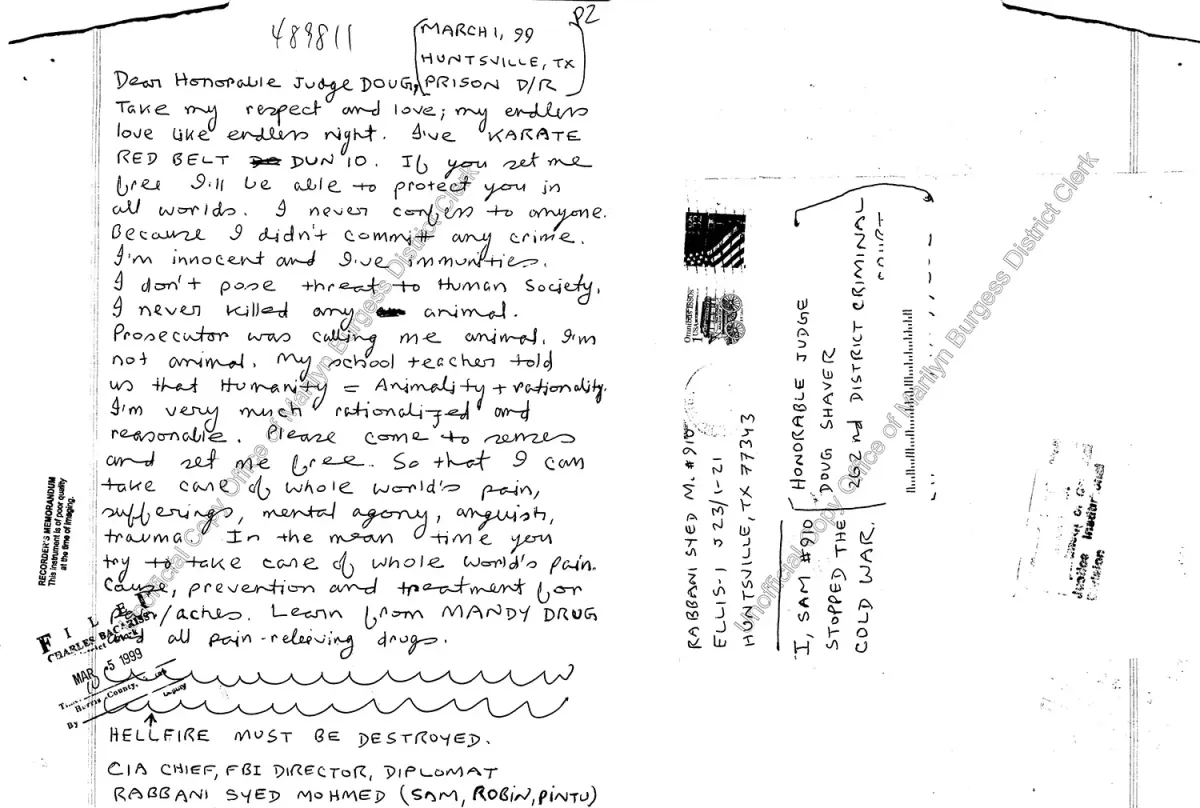 P2
489811
MARCH 1, 99
HUNTSVILLE, TX
PRISON D/R
Dear Honorable Judge DOUG,
Take my respect and love; my endless
love like endless night. I've KARATE
RED BELT DUN 10. If you set me
free I'll be able to protect you in
all worlds. I never confess to anyone.
Because I didn't commit any crime.
I'm innocent and I've immunities.
I don't pose threat to Human Society.
I never killed any animal.
Prosecutor was calling me animal. I'm
not animal. My school teacher told
us that Humanity = Animality + rationality.
I'm very much rationalized and
reasonable. Please come to senses
and set me free. So that I can
take care of whole world's pain,
sufferings, mental agony, anguish,
trauma. In the mean time you
try to take care of whole world's pain.
Cause, prevention and treatment for
/aches. Learn from MANDY DRUG
all pain-relieving drugs.
HELLFIRE MUST BE DESTROYED.
CIA CHIEF, FBI DIRECTOR, DIPLOMAT
RABBANI SYED MOHMED (SAM, ROBIN, PINTU)
RECORDER'S MEMORANDUM
This instrument is of poor quality
at the time of imaging.
FILED
CHARLES
District Clerk
MAR 5 1999
Harris County,
By Deputy
Unofficial Copy Office of Marilyn Burgess District Clerk
RABBANI SYED M. #910
ELLIS-1 J23/1-21
HUNTSVILLE, TX 77343
USA
HONORABLE JUDGE
DOUG SHAVER
262nd DISTRICT CRIMINAL
COURT
I, SAM #910
STOPPED THE
COLD WAR.
Unofficial Copy Office of Marilyn Burgess District Clerk
Justice
Division